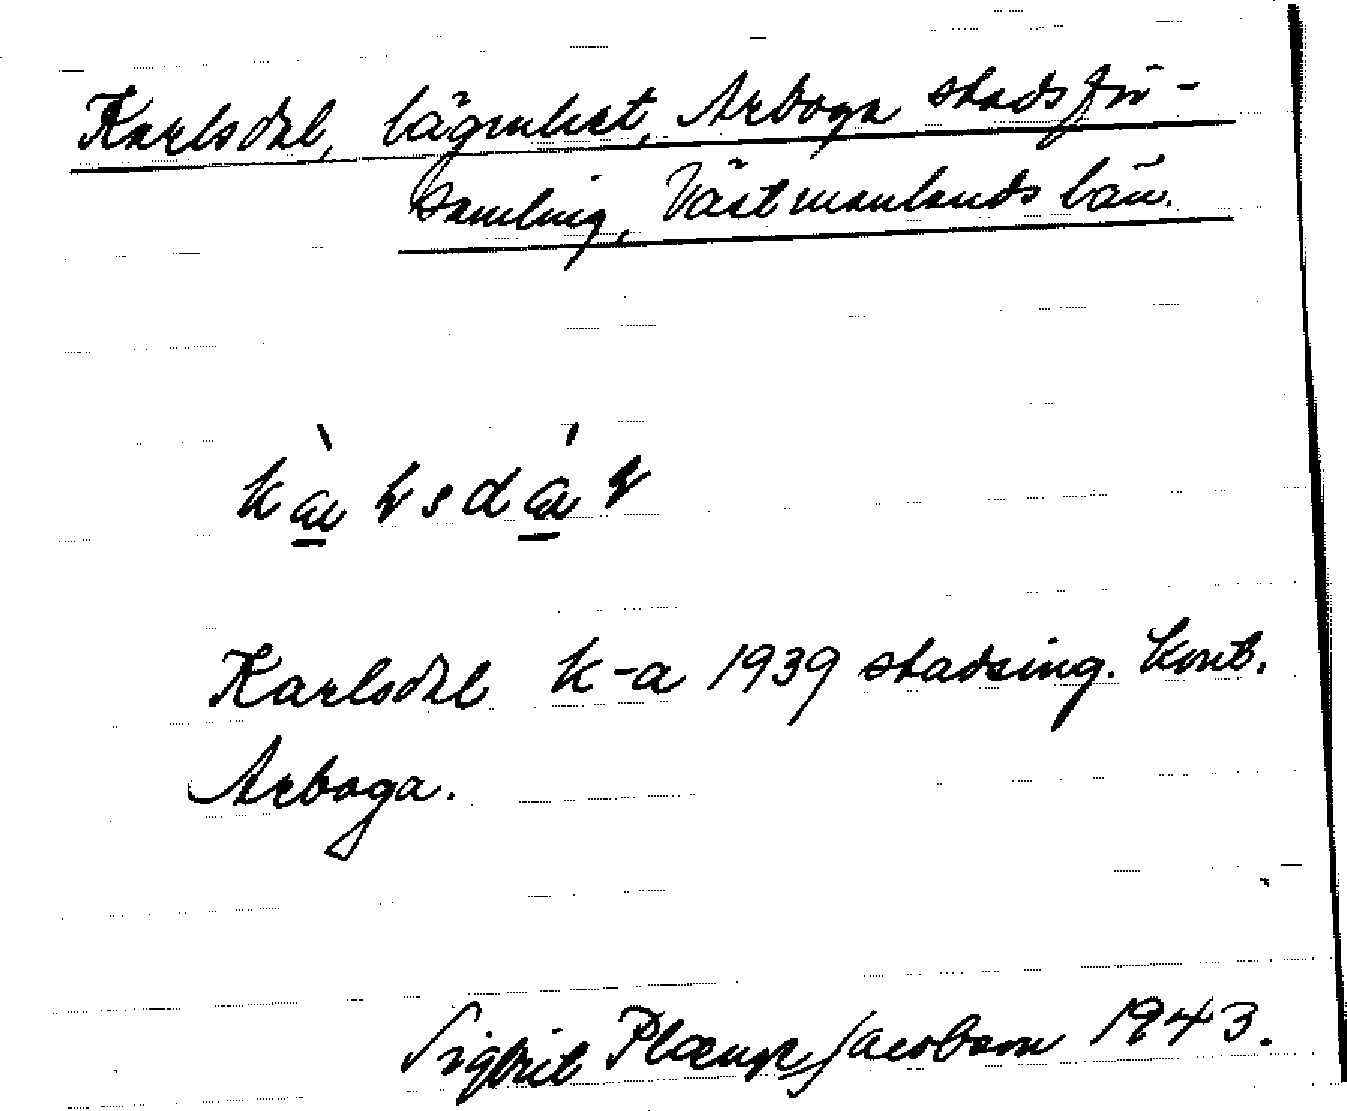 Karlsdal, lägenhet, Arboga stadsför-
samling, Västmanlands län.
Karlsdal k-a 1939 stadsing. kont.
Arboga.
Sigbrit Plænge Jacobson 1943.